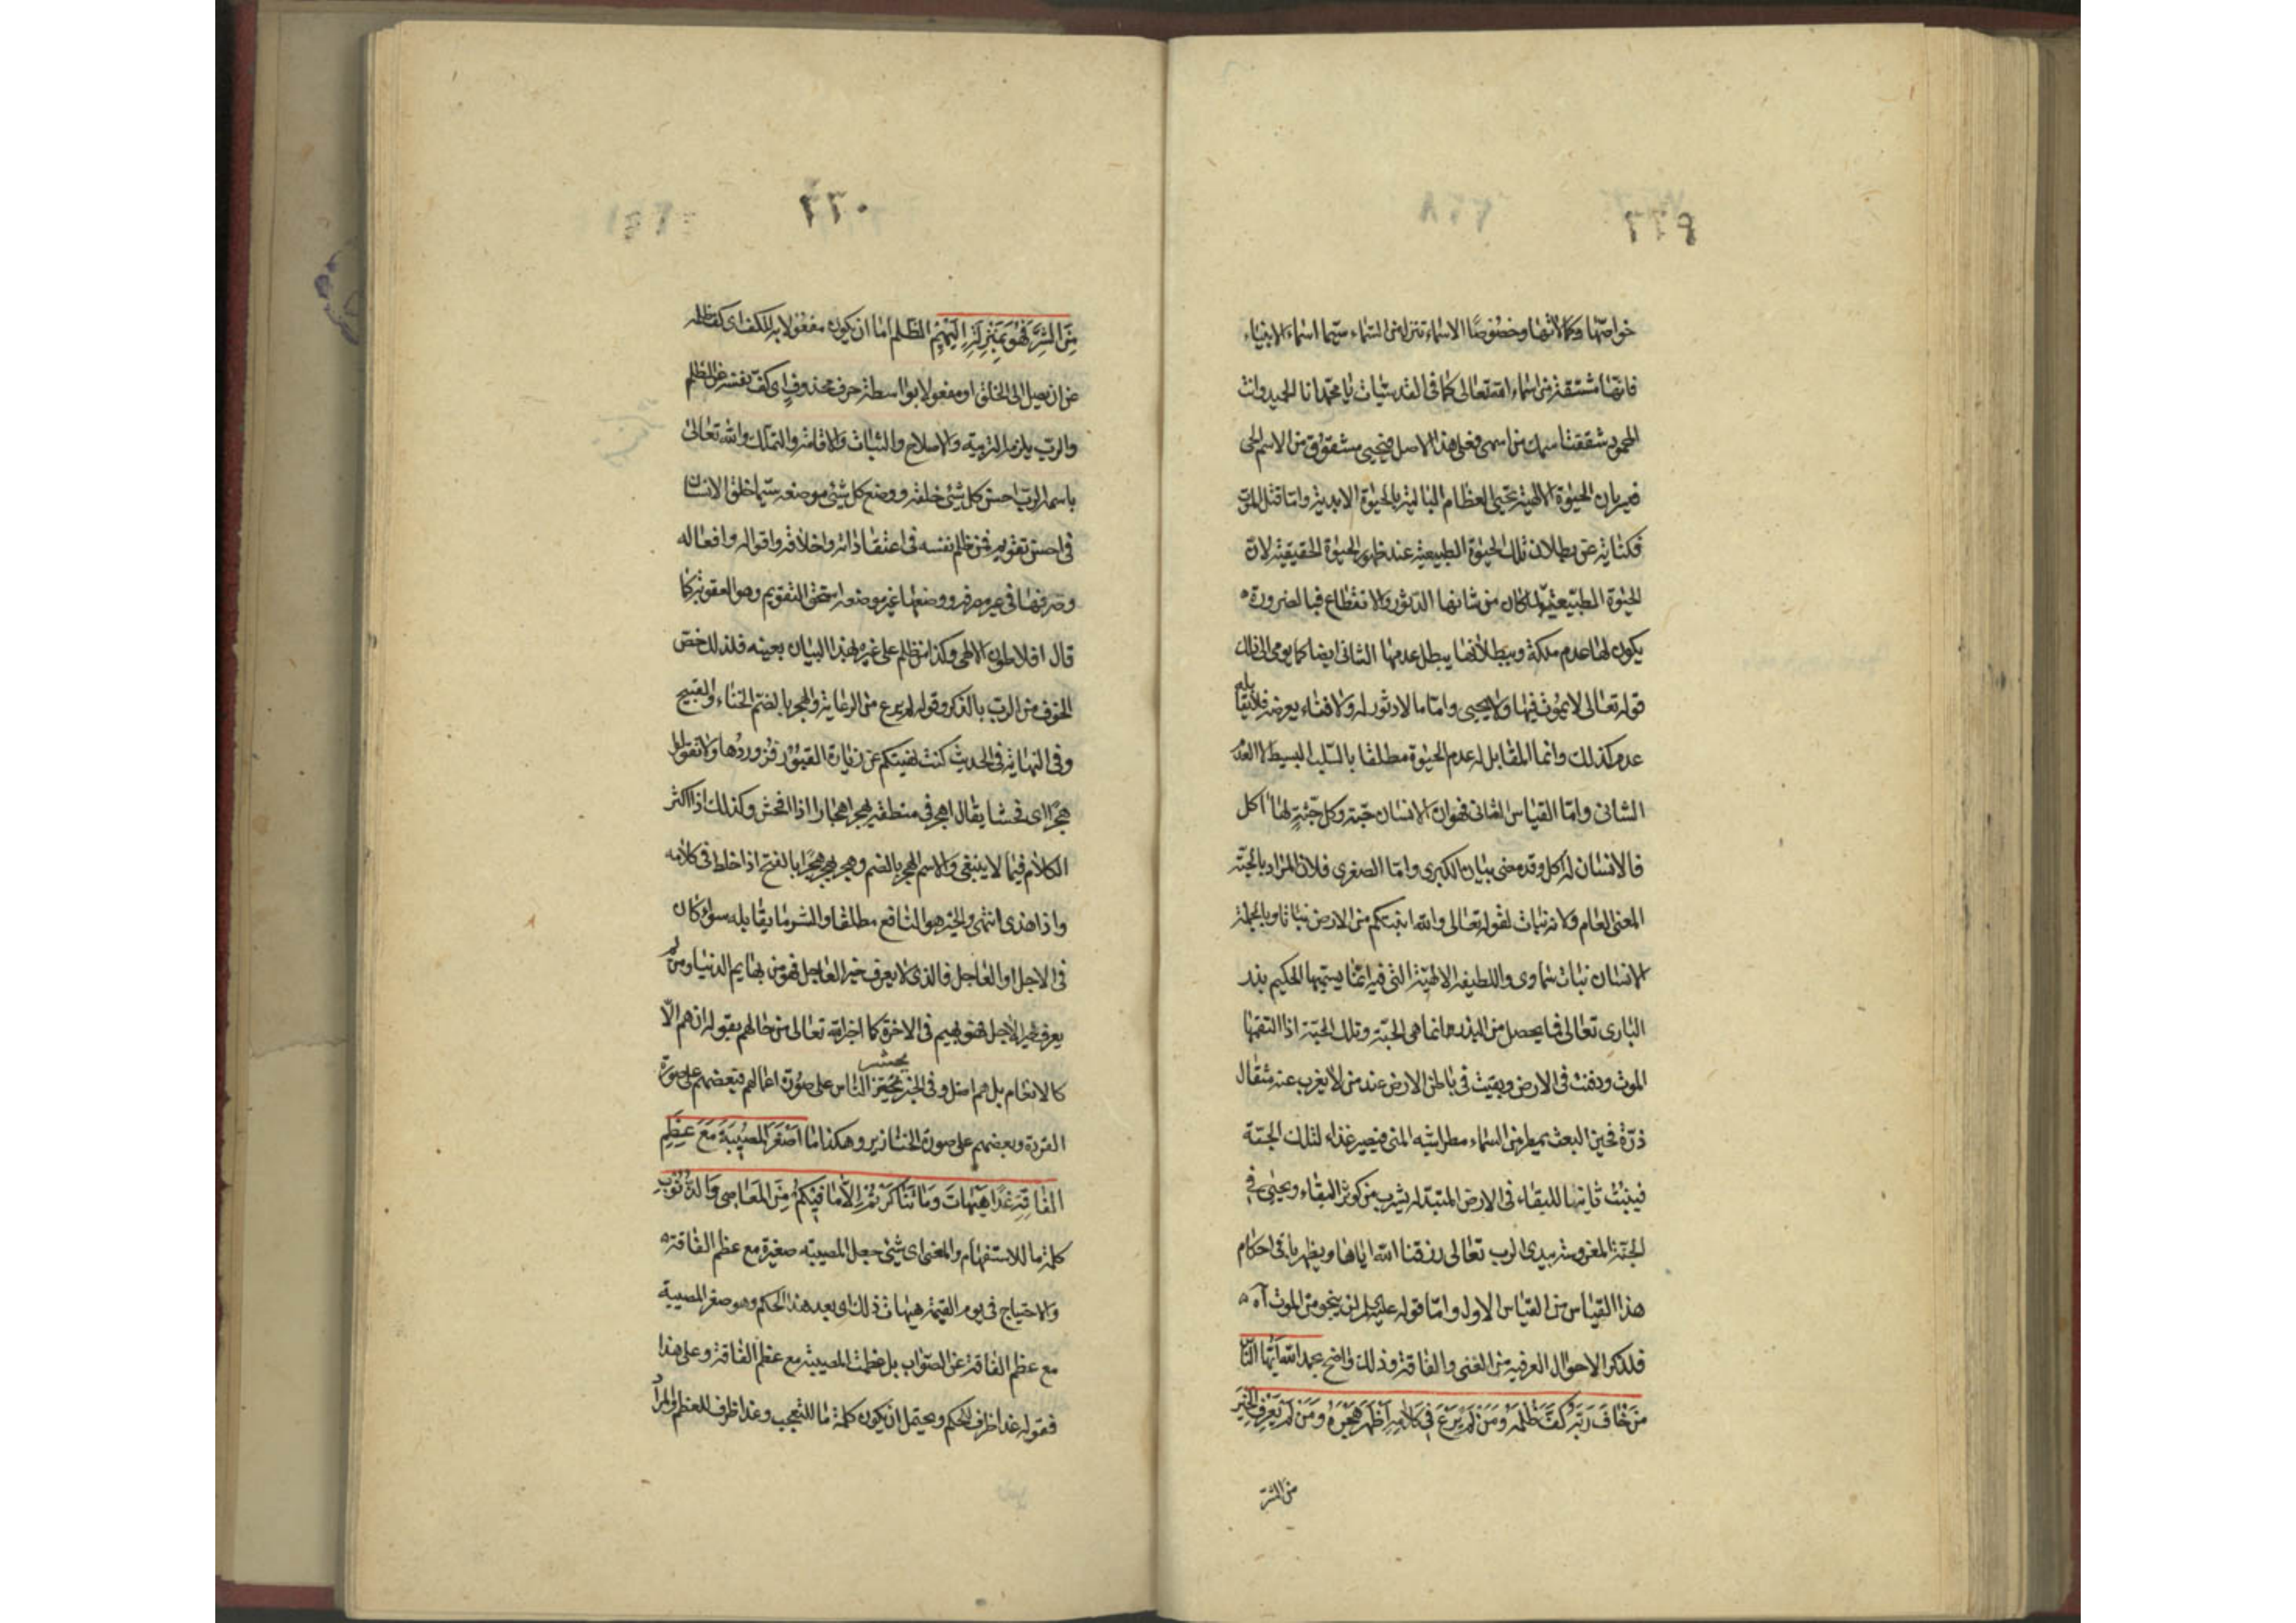 ٢٢٩
خواصّها وكمالاتها وخصُوصًا الاسماء تتنزل من السّماء سيّما اسماء الانبياء
فانّها مشتقّة من اسماء الله تعالى كما فى القدسيّات يا محمّد انا الحميد وانت
المحمود شققت اسمك من اسمى فعلى هذا الاصل فيحيى مشقوق من الاسم الحى
فسريان الحيٰوة الالٰهيّة تحيى العظام البالية بالحيٰوة الابديّة وامّا قتل الموت
فكناية عن بطلان تلك الحيٰوة الطبيعيّة عند ظهور الحيٰوة الحقيقيّة لانّ
الحيٰوة الطبيعيّة لمّا كان من شانها الدثور والانقطاع فبالضرورة
يكون لها عدم ملكة وببطلانها يبطل عدمها الثانى ايضا كما يومى الى ذلك
قوله تعالى لا يموت فيها ولا يحيى وامّا ما لا دثور له ولا فناء يعرضه فلا يقابله
عدم كذلك وانما المقابل له عدم الحيٰوة مطلقا بالسّلب البسيط لا العدم
الثانى وامّا القياس الثانى فهو ان الانسان حبّة وكل حبّةٍ لها اٰكل
فالانسان له اٰكل وقد مضى بيان الكبرى وامّا الصغرى فلان المراد بالحبّة
المعنى العام ولانه نبات لقوله تعالى والله انبتكم من الارض نباتا وبالجملة
الانسان نبات سماوى واللطيفة الالٰهيّة التى فيه انّما يسمّيها الحكيم بذر
البارى تعالى فما يحصل من البذر انما هى الحبّة وتلك الحبّة اذا التقمها
الموت ودفنت فى الارض وبقيت فى باطن الارض عند من لا يعزب عنه مثقال
ذرّة فحين البعث يمطر من السّماء مطر شبه المنى فيصير غذاء لتلك الحبّة
فينبت ثانيا للبقاء فى الارض المتبدّلة يشرب من كوثر البقاء ويحيى فى
الجنّة المغروسة بيدى الرب تعالى رزقنا الله اياها ويظهر باقى احكام
هذا القياس من القياس الاول وامّا قوله عليه السلام لن ينجو من الموت اٰه
فلذكر الاحوال العرفية من الغنى والفاقة وذلك واضح عبد الله ايّها النّاس
مَنْ خٰافَ رَبَّهُ كَفَّ ظُلْمَهُ وَمَنْ لَمْ يَرْعَ فِى كَلٰامِهِ اَظْهَرَ هُجْرَهُ وَمَنْ لَمْ يَعْرِفِ الْخَيْرَ
من الشرّ
٢٣٠
مِنَ الشَّرِّ فَهُوَ بِمَنْزِلَةِ الْبَهِيْمِ الظلم اما ان يكون مفعولا به للكف اى كف ظلمه
عن ان يصل الى الخلق او مفعولا بواسطة حرف محذوف اى كفّ نفسه عن الظلم
والربّ يلزمه التربية والاصلاح والثبات والاقامة والتملّك والله تعالى
باسمه الربّ احسن كل شئ خلقه ووضع كل شئ موضعه سيّما خلق الانسان
فى احسن تقويم فمن ظلم نفسه فى اعتقاداته واخلاقه واقواله وافعاله
وصرفها فى غير مصرفه ووضعها غير موضعه استحق التقويم وهو العقوبة كما
قال افلاطون الالٰهى وكذا من ظلم على غيره بهذا البيان بعينه فلذلك خصّ
الخوف من الربّ بالذكر وقوله لم يرع من الرعاية والهجر بالضمّ الخناء والقبيح
وفى النهاية فى الحديث كنت نهيتكم عن زيارة القبور فزوروها ولا تقولوا
هُجرًا اى فحشا يقال اهجر فى منطقه يهجر اهجارا اذا افحش وكذلك اذا اكثر
الكلام فيما لا ينبغى والاسم الهجر بالضم وهجر يهجر هجرا بالفتح اذا خلط فى كلامه
واذا هذى انتهى والخير هو النافع مطلقا والشر ما يقابله سواء كان
فى الاجل او العاجل فالذى لا يعرف خير العاجل فهو من بهايم الدنيا ومن لم
يعرف خير الاجل فهو بهيم فى الاخرة كما اخبر الله تعالى من حالهم بقوله ان هم الّا
كالانعام بل هم اضل وفى الخبر يحشر النّاس على صورة اعمالهم فبعضهم على صورة
القردة وبعضهم على صورة الخنازير وهكذا مٰا اَصْغَرَ الْمُصِيْبَةَ مَعَ عِظَمِ
الْفٰاقَةِ غَدًا هَيْهٰاتَ وَمٰا تَنٰاكَرْتُمْ اِلّٰا لِمٰا فِيْكُمْ مِنَ الْمَعٰاصِى وَالذُّنُوْبِ
كلمة ما للاستفهام والمعنى اى شئ جعل المصيبة صغيرة مع عظم الفاقة
والاحتياج فى يوم القيٰمة هيهات ذلك اى بعد هذا الحكم وهو صغر المصيبة
مع عظم الفاقة عن الصّواب بل عظمت المصيبة مع عظم الفاقة وعلى هذا
فقوله غدا ظرف للحكم ويحتمل ان يكون كلمة ما للتعجب وغدا ظرف للعظم والمراد